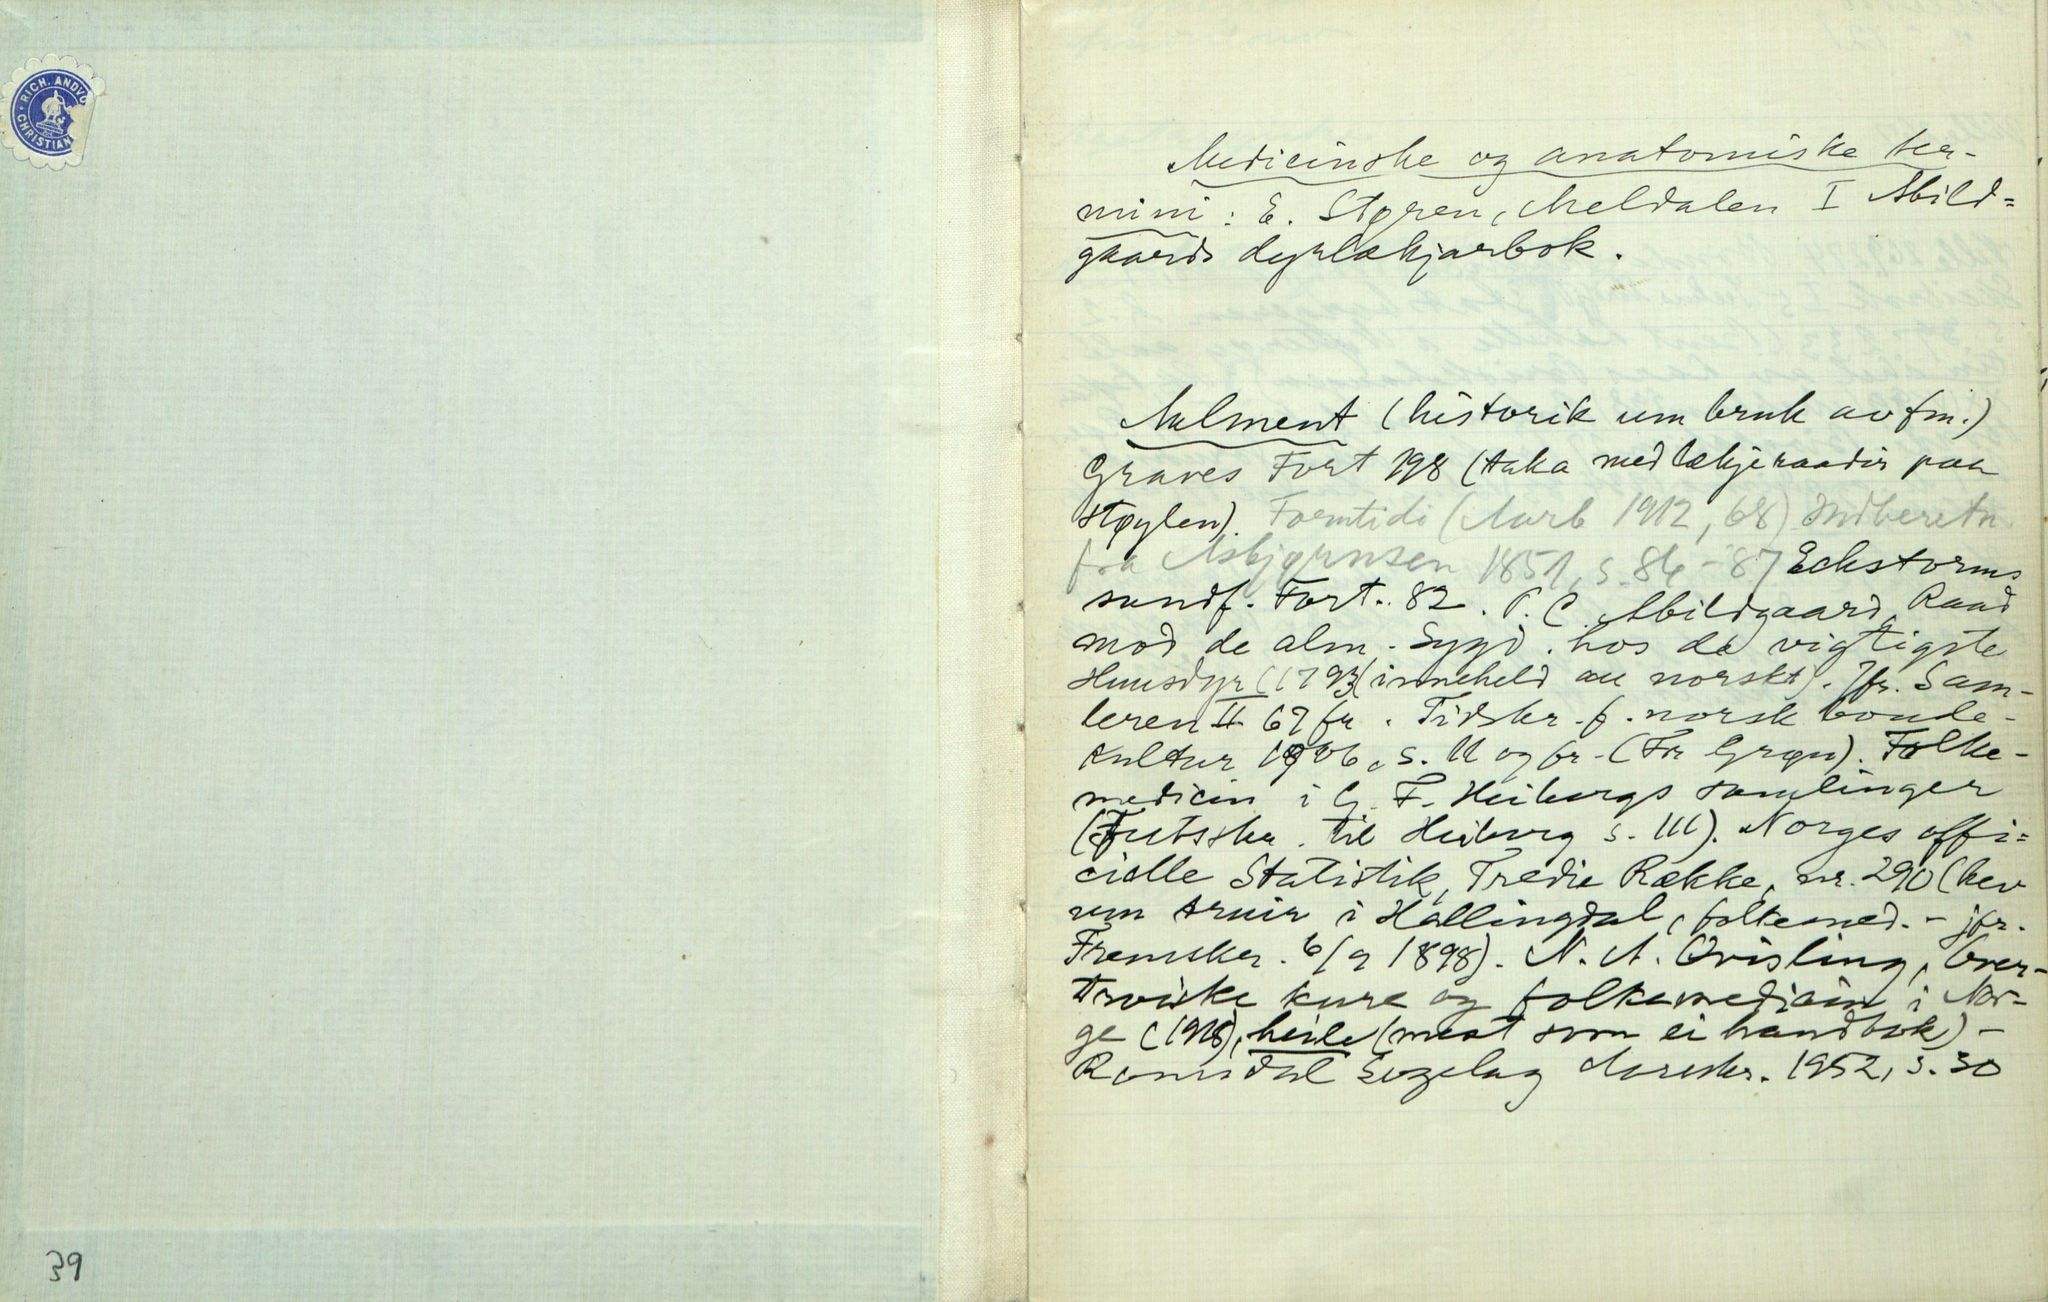 RICH. ANDVO
CHRISTIAN
Medicinske og anatomiske ter-
mini: E. Støren, Meldalen I Abild=
gaards dyrlækjarbok.
Aalment (historik um bruk av fm.)
Graves Fort 198 (taka med lækjeraadir paa
støylen). Forntidi (Aarb 1912, 68) Indberetn.
fra Asbjørnsen 1851, s. 86-87 Eckstorms
sundf. Fort. 82. P. C. Abildgaard, Raad
mod de alm. Sygd. hos de vigtigste
Huusdyr (1793 (inneheld au norskt). Jfr. Sam-
leren II 67 fr. Tidskr. f. norsk bonde-
kultur 1906, s. 11 og fr. (Fr Grøn). Folke-
medicin i G. F. Heibergs samlinger
(Festskr. til Heiberg s. 111). Norges offi=
cielle Statistik, Tredie Række, nr. 290 (hev
um truir i Hallingdal, folkemed. - jfr.
Fremskr. 6/9 1898). N. A. Qvisling, Over-
troiske kure og folkemedicin i Nor-
ge (1918), heile (mest som ei handbok) -
Romsdal Sogelag Aarsskr. 1952, s. 30
39